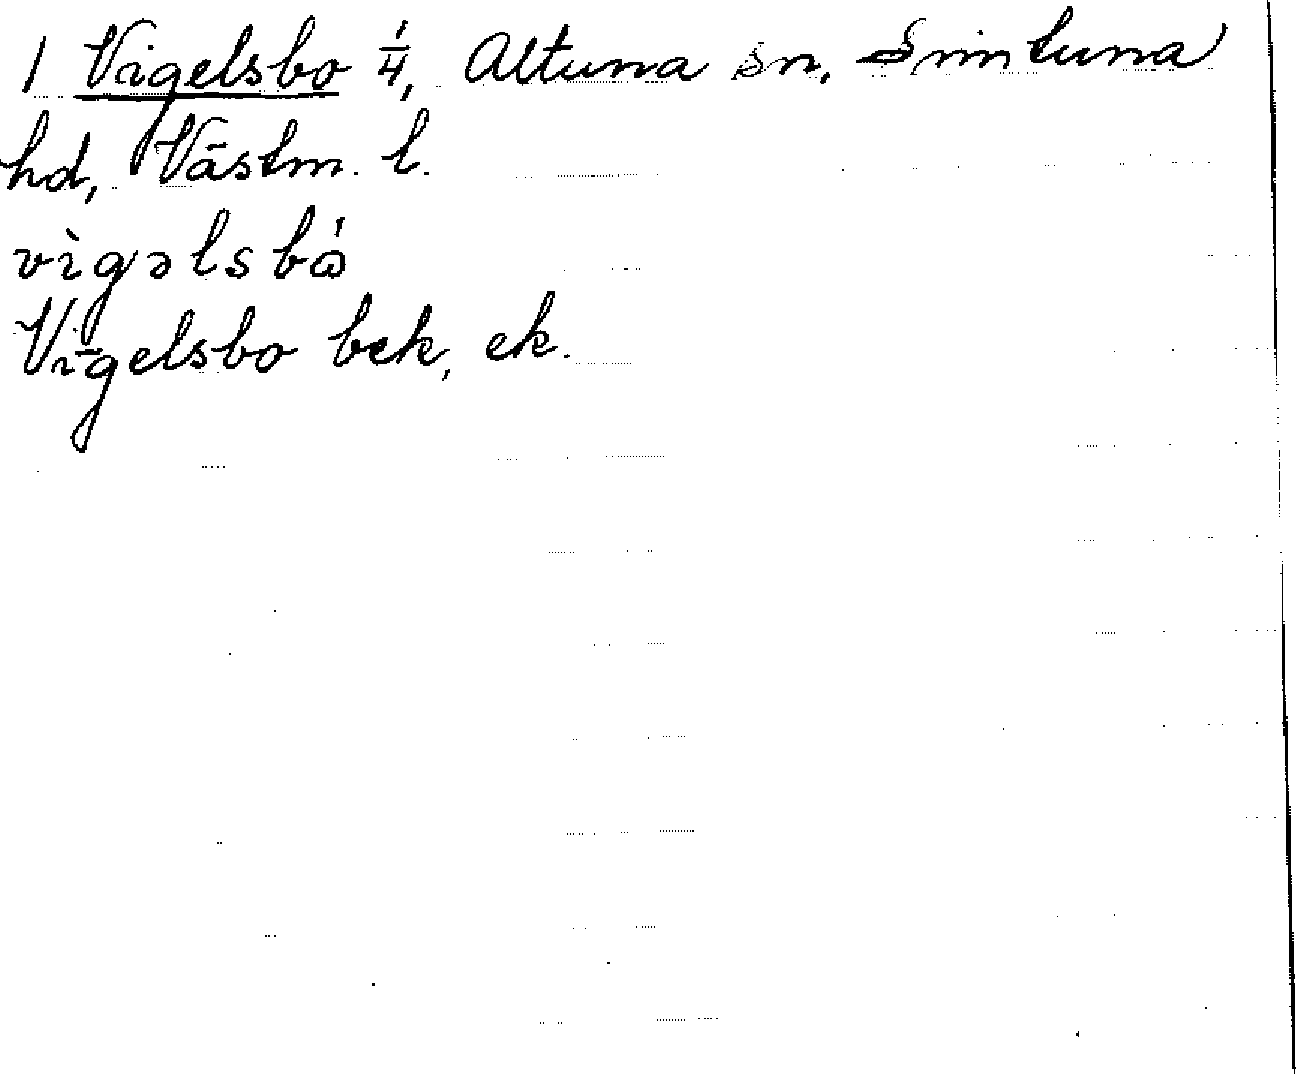 1 Vigelsbo 1/4, Altuna sn, Simtuna
hd, Västm. l.
vìgəlsbó
Vigelsbo bek, ek.